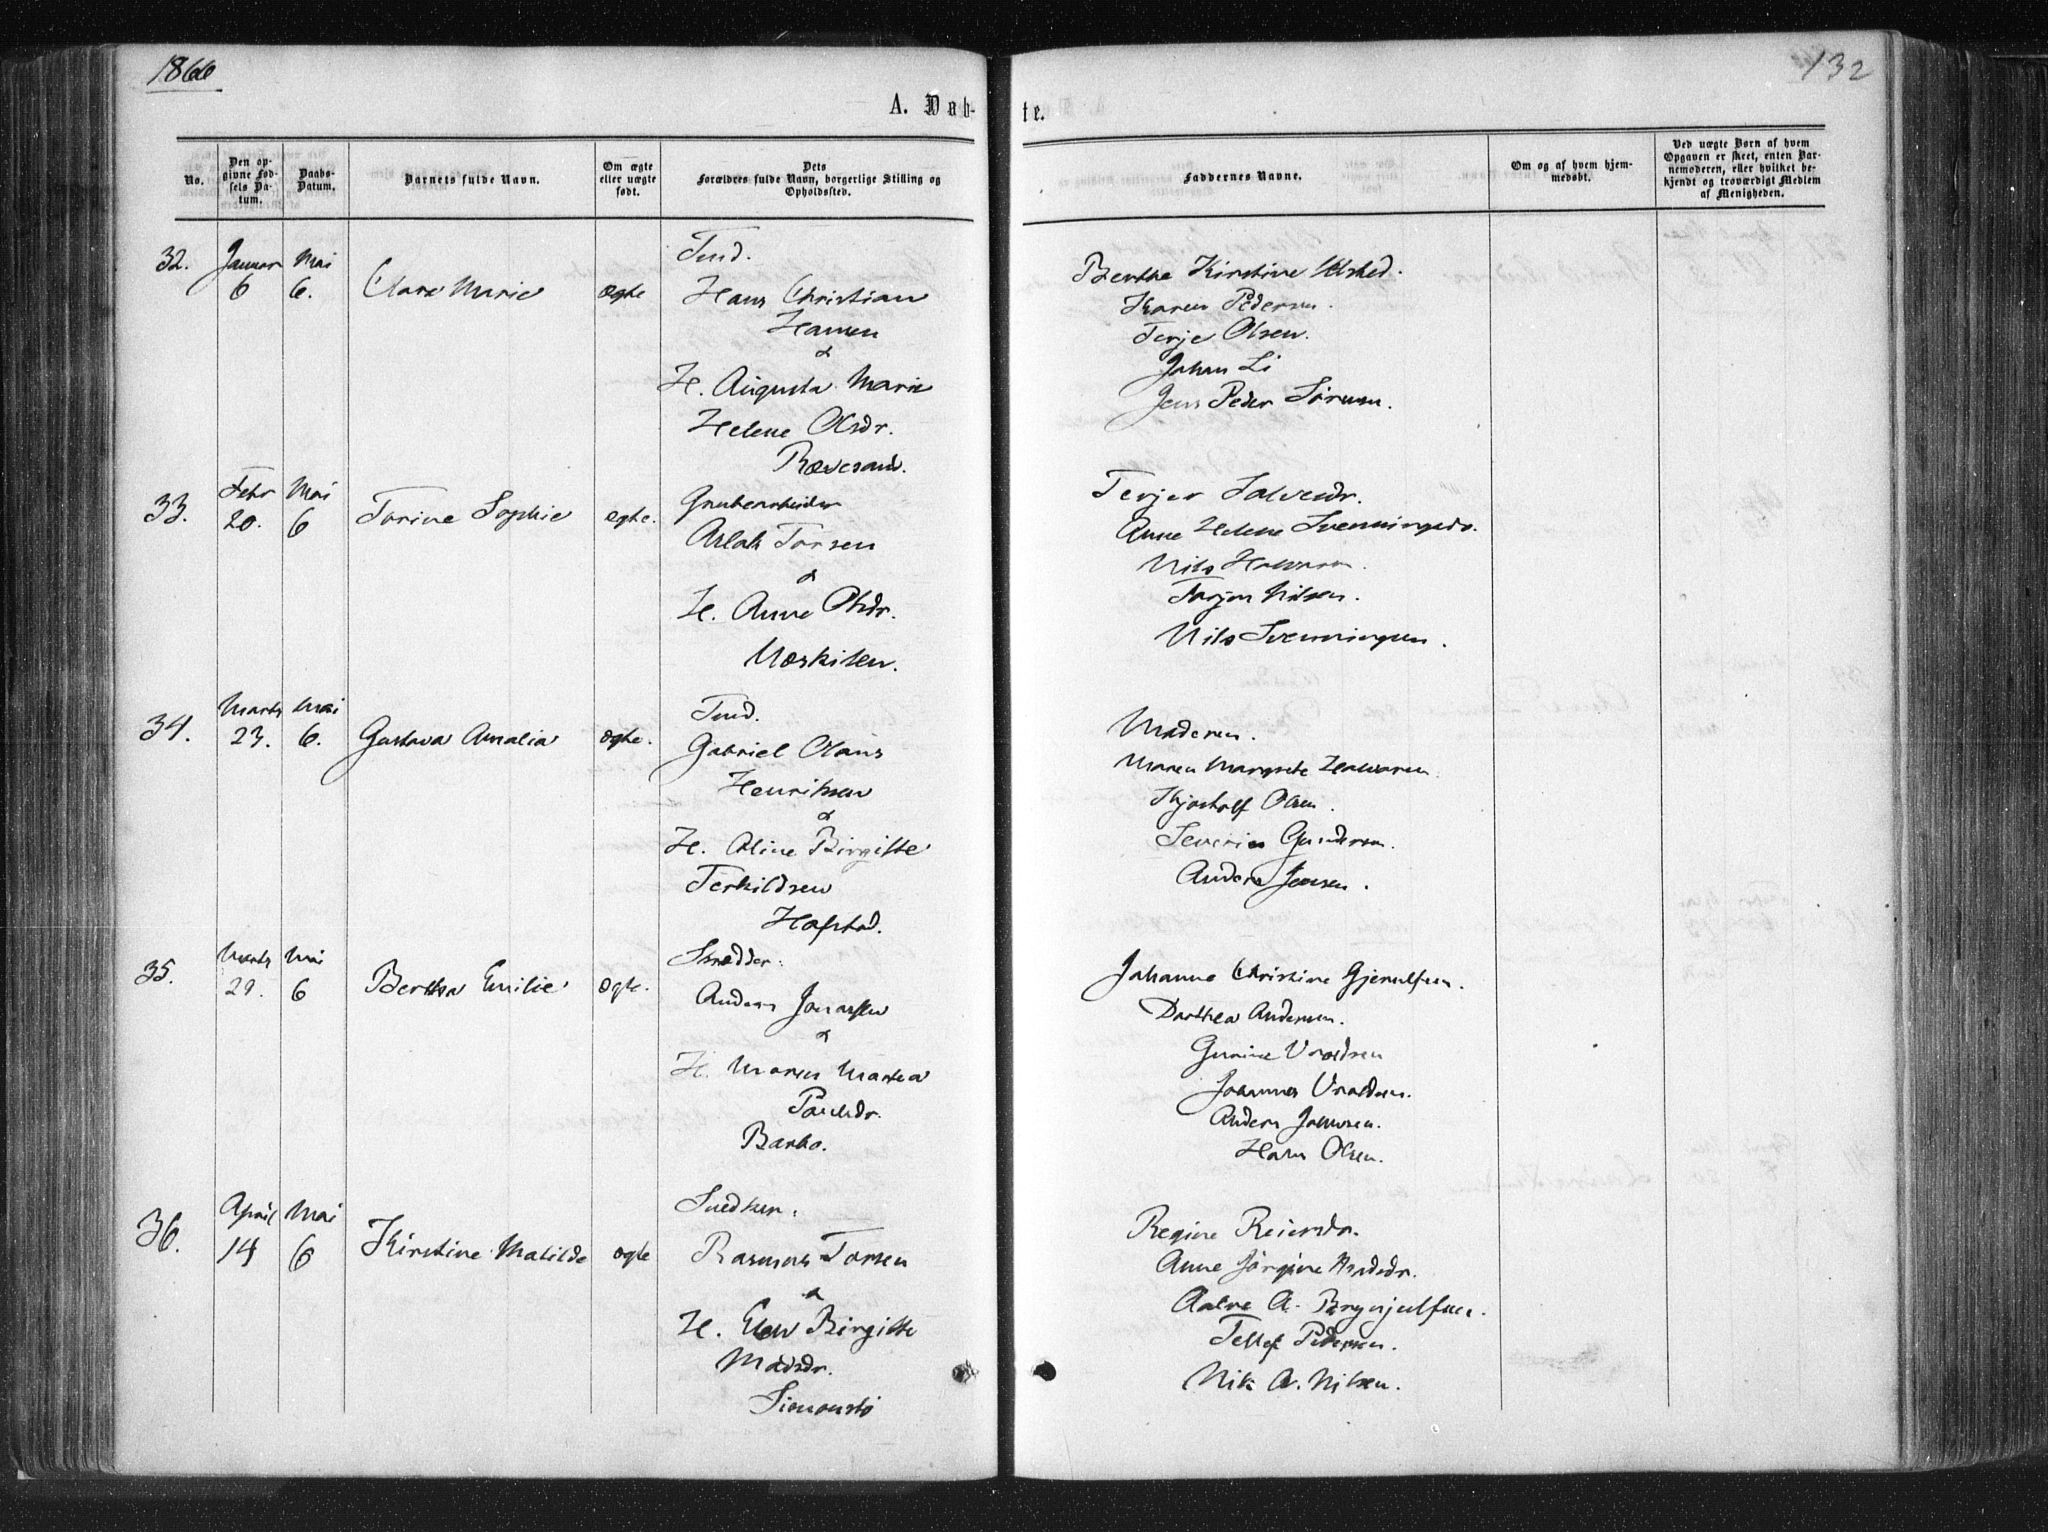 1866
132
A. Døb-
te.
No.
Den op-
givne Fød-
sels Da-
tum.
Daabs-
Datum.
Barnets fulde Navn.
Om ægte
eller uægte
født.
Dets
Forældres fulde Navn, borgerlige Stilling og
Opholdssted.
Faddernes Navne.
Om og af hvem hjem-
medøbt.
Ved uægte Børn af hvem
Opgaven er skeet, enten Bar-
nemoderen, eller hvilket be-
kjendt og troværdigt Medlem
af Menigheden.
32.
Januar
6
Mai
6.
Clara Marie
ægte
Hans Christian
Hansen
&
H. Augusta Marie
Helene Olsdr.
Rævesand.
Berthe Kirstine
Karen Pedersen.
Terje Olsen.
Johan Li
Jens Peder Sörensen.
33.
Febr
20.
Mai
6
Torine Sophie
ægte.
Grubearbeider
Aslak Torsen
&
H. Anne Olsdr.
Næskilen.
Terjer Salvesdr.
Anne Helene Svenningsdr.
Nils Halvorsen.
Torjer Nilsen.
Nils Svenningsen.
34.
Marts
23.
Mai
6.
Gustava Amalia
ægte.
Gabriel Olaus
Henriksen
&
H. Oline Birgitte
Terkildsen
Hafstad.
Moderen.
Maren Margrete Halvorsen.
Olsen.
Severin Gundersen.
Anders Jensen.
35.
Marts
29.
Mai
6
Berthea Emilie
ægte.
Skredder.
Anders Jonassen
&
H. Maren Martea
Paulsdr.
Barbo.
Johanne Christine Gjerulfsen.
Dorthea Andersen.
Gunine Vraldsen
Johannes Vraldsen.
Anders Johnsen.
Hans Olsen.
36.
April
14
Mai
6
Kirstine Matilde
ægte
Snedker.
Rasmus Torsen
&
H. Elen Birgitte
Madsdr.
Simonstö
Regine Reiersdr.
Anne Jörgine
A. Brynjulfsen.
Tellef Pedersen.
Nils A. Nilsen.